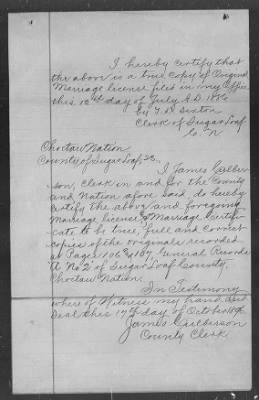 I hereby certify that
the above is a true copy of Original
Marriage license filed in my Office
this 12th day of July A.D. 1886
by T. D. Sexton
Clerk of Sugar Loaf
Co. N
Choctaw Nation
County of Sugar Loaf, SC.
I James Culber-
son, Clerk in and for the County
and Nation afore said, do hereby
certify the above and foregoing
Marriage license & Marriage Certifi-
cate to be true, full and correct
copies of the originals recorded
at Page 106 & 107, General Records
A No 2 of Sugar Loaf County,
Choctaw Nation.
In Testimony
where of Witness my hand and
Seal this 17th day of October
James Culberson
County Clerk